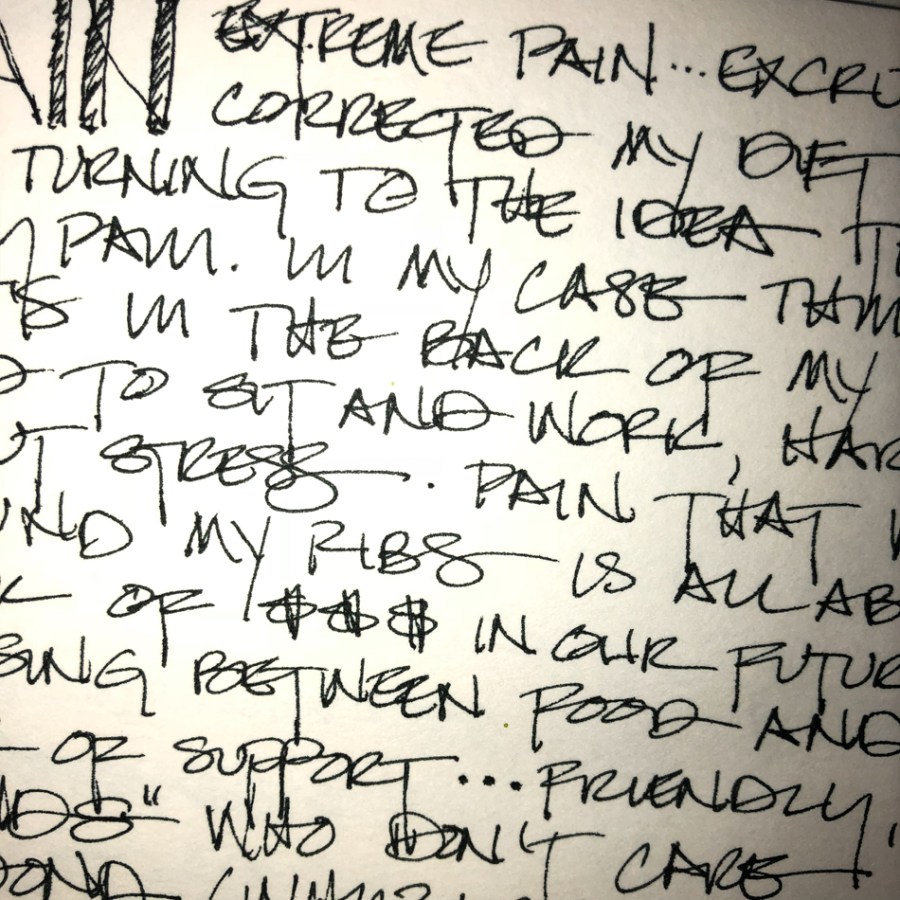 AIN EXTREME PAIN... EXCRU
CORRECTED MY DIET
TURNING TO THE IDEA
PAIN. IN MY CASE
'S IN THE BACK OF MY
TO SIT AND WORK, HAR
STRESS. PAIN THAT
UND MY RIBS IS ALL AB
K OF $$$ IN OUR FUTUR
BETWEEN FOOD AND
OF SUPPORT... FRIENDLY,
NDS" WHO DON'T CARE